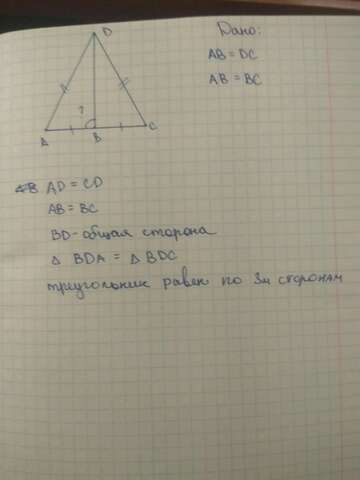 D
Дано:
AB = DC
AB = BC
?
A
B
C
AD = CD
AB = BC
BD - общая сторона
Δ BDA = Δ BDC
треугольник равен по 3м сторонам